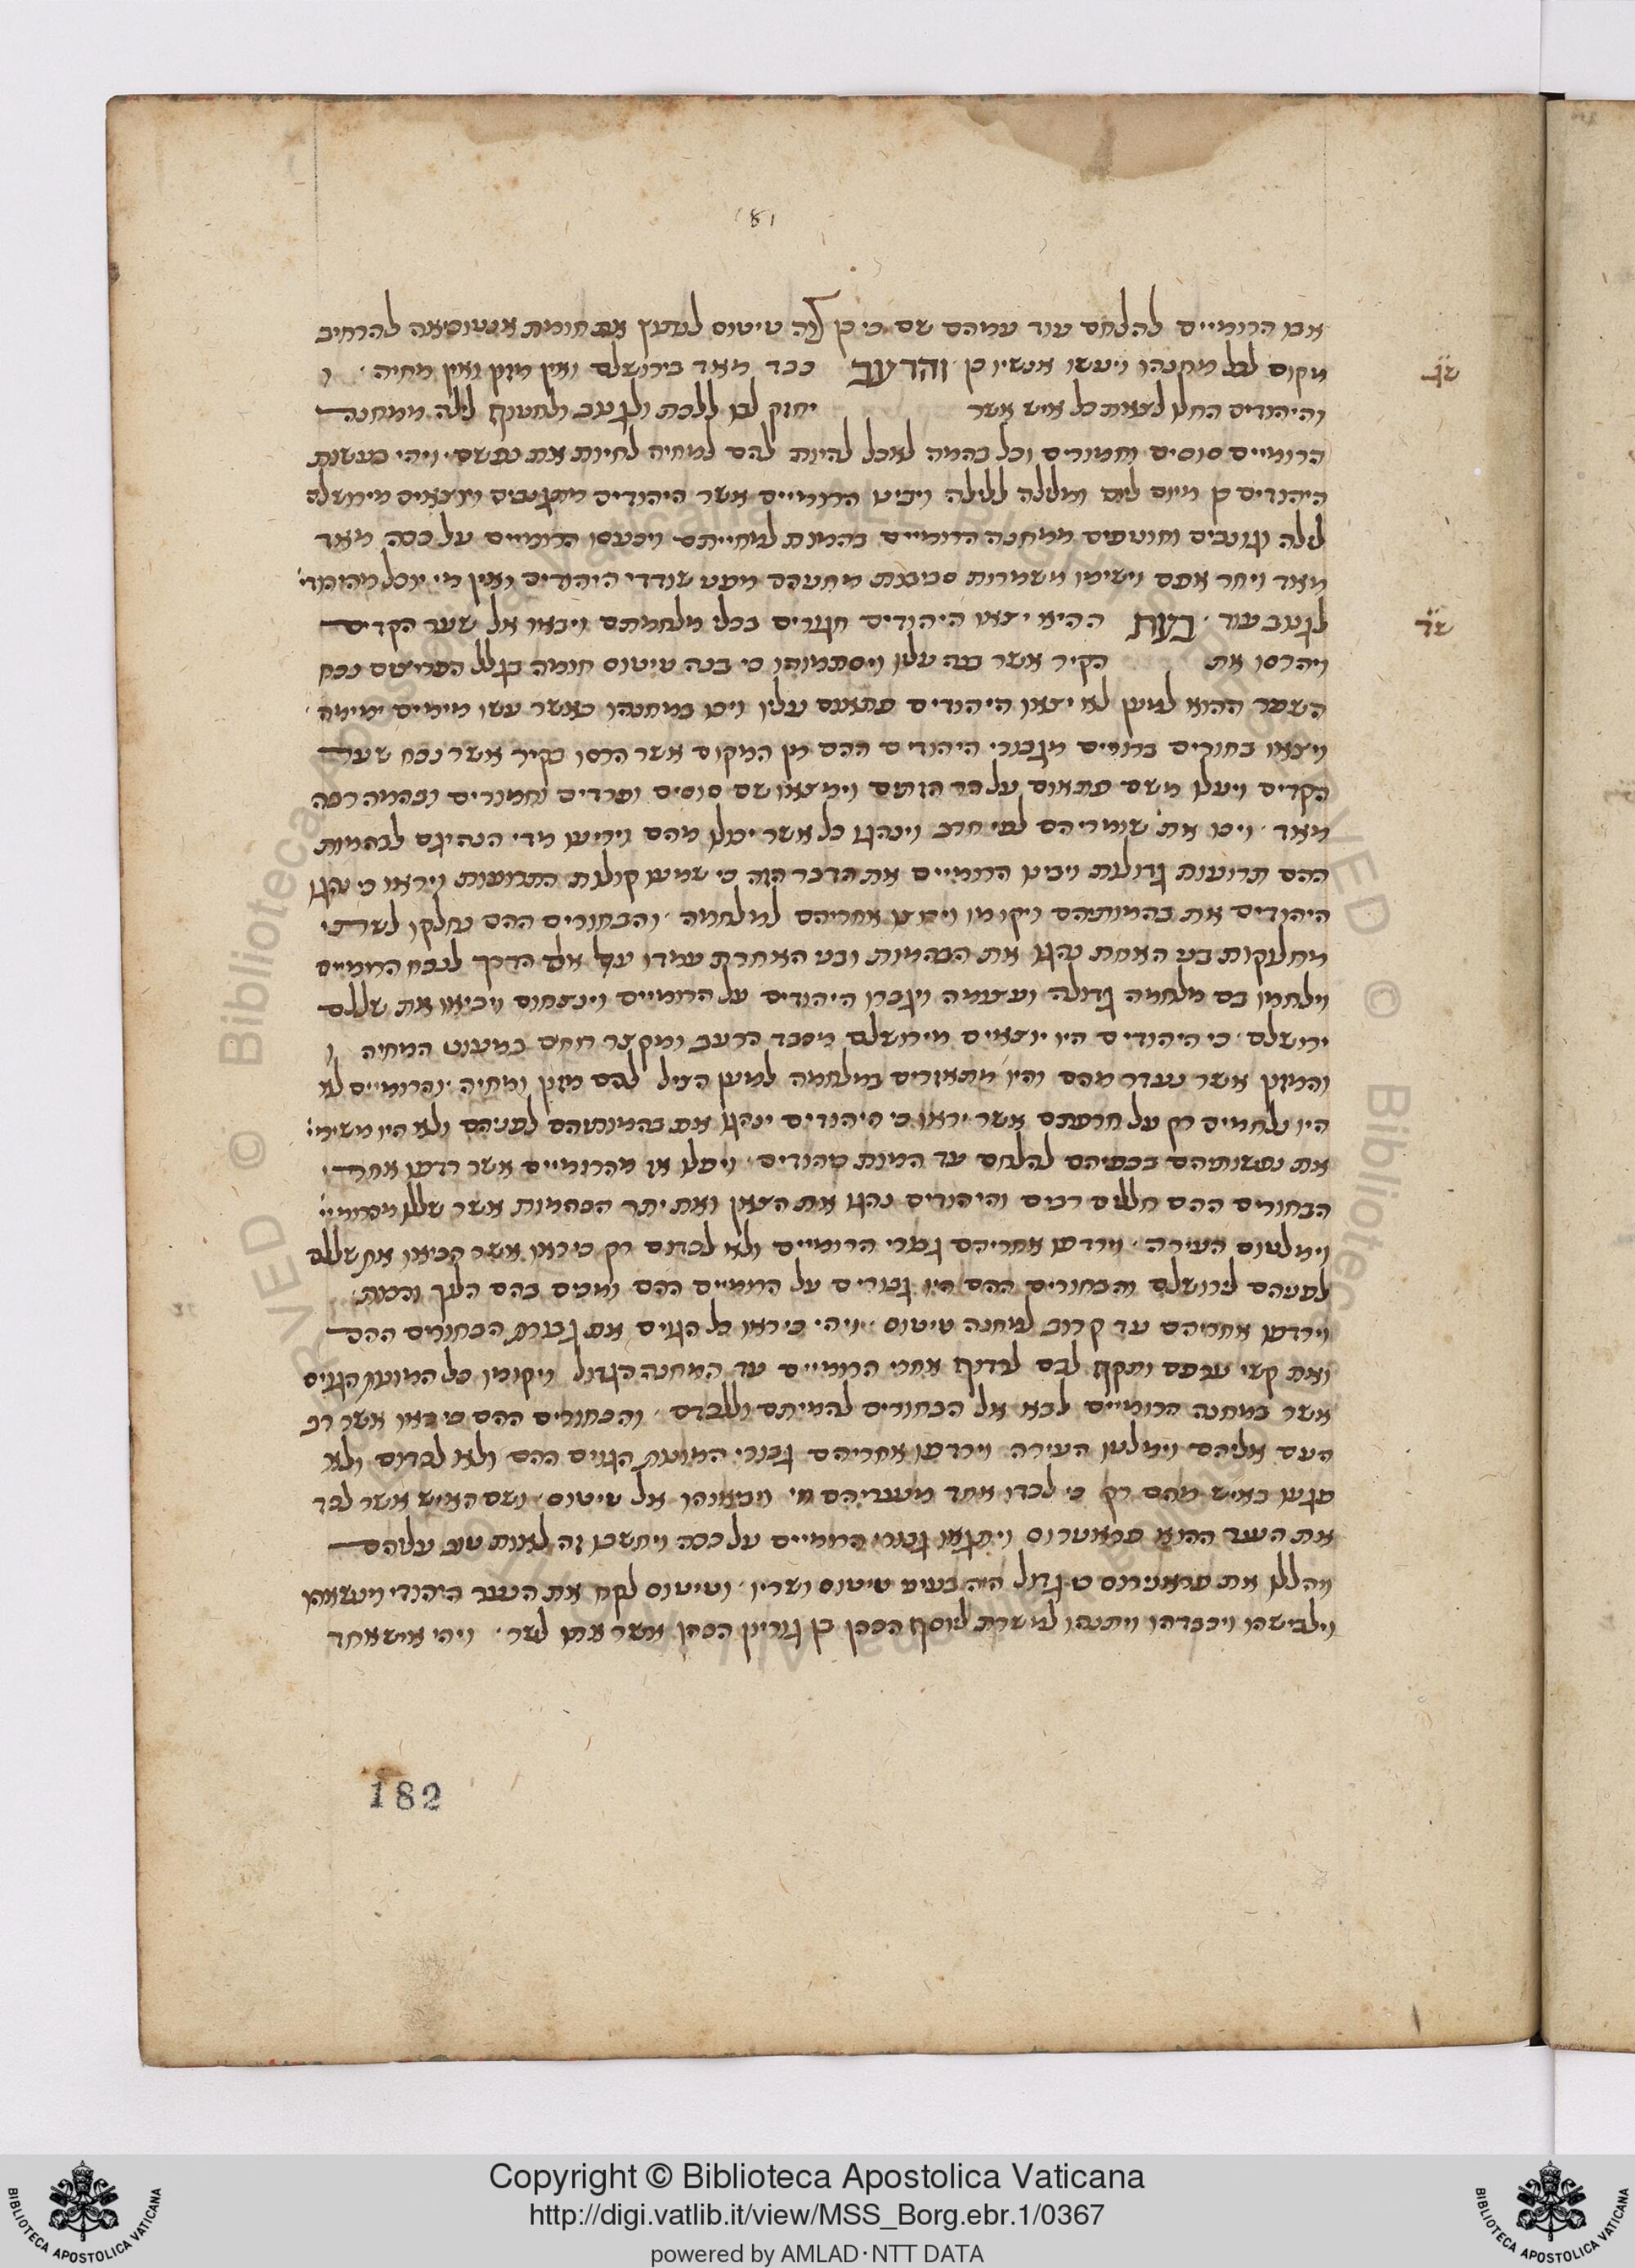 181
אבו הרומיים להלחם עוד עמהם שם כי כן צוה טיטוס לנתץ את חומת אנטוניאה להרחיב
מקום לכל מחנהו ויעשו אנשיו כן והרעב כבד מאד בירושלם ואין מזון ואין מחיה ו
שג
והיהודים החלו לצאת כל איש אשר יחזק לבו ללכת ולגנוב ולחטוף לילה ממחנה
הרומיים סוסים וחמורים וכל בהמה לאכל להיות להם למחיה לחיות את נפשם ויהי כעשות
היהודים כן מיום ליום ומלילה ללילה ויבינו הרומיים אשר היהודים מתגנבים ויוצאים מירושלם
לילה וגונבים וחוטפים ממחנה הרומיים בהמות למחייתם ויכעסו הרומיים על ככה מאד
מאד ויחר אפם וישימו משמרות סביבות מחניהם מפני שודדי היהודים ואין מי יוכל מהיהוד
לגנוב עוד בעת ההיא יצאו היהודים חגורים בכלי מלחמתם ויבאו אל שער הקדים
שד
ויהרסו את הקיר אשר בנה עליו ויסתמוהו כי בנה טיטוס חומה בגלל הפריצים נכח
השער ההוא למען לא יצאו היהודים פתאם עליו ויכו במחנהו כאשר עשו מימים ימימה
ויצאו בחורים ברורים מגבורי היהודים ההם מן המקום אשר הרסו בקיר אשר נכח שער
הקדים ויעלו משם פתאום על הר הזתים וימצאו שם סוסים ופרדים וחמורים ובהמה רבה
מאד ויכו את שומריהם לפי חרב וינהגו כל אשר יכלו מהם ויריעו מדי הנהיגם לבהמות
ההם תרועות גדולות ויבינו הרומיים את הדבר הזה כי שמעו קולות התרועות ויראו כי נהגו
היהודים את בהמותיהם ויקומו ויסעו אחריהם למלחמה והבחורים ההם נחלקו לשתי
מחלקות בני האחת נהגו את הבהמות ובני האחרת עמדו על אם הדרך לנכח הרומיים
וילחמו בם מלחמה גדולה ועצומה ויגברו היהודים על הרומיים וינצחום ויביאו את שללם
ירושלם כי היהודים היו יוצאים מירושלם מכבד הרעב ומקצר רוחם במעוט המחיה ו
והמזון אשר נעדר מהם והיו מתאזרים במלחמה למען הציל להם מזון ומחיה והרומיים לא
היו נלחמים רק על חרפתם אשר יראו כי היהודים ינהגו את בהמותיהם לפניהם ולא היו משימי
את נפשותיהם בכפיהם להלחם עד המות כיהודים ויפלו אז מהרומיים אשר רדפו אחרי
הבחורים ההם חללים רבים והיהודים נהגו את הצאן ואת יתר הבהמות אשר שללו מהרומיי
וימלטום העירה וירדפו אחריהם גבורי הרומיים ולא לכדום רק כי ראו אשר הביאו את שללם
לפניהם לירושלם והבחורים ההם היו גבורים על הרומיים ההם ומכים בהם הלוך והכות
וירדפו אחריהם עד קרוב למחנה טיטוס ויהי כי ראו כל הגוים את גבורת הבחורים ההם
ואת קשי ערפם ותקף לבם לרדוף אחרי הרומיים עד המחנה הגדול ויקומו כל המונות הגוים
אשר במחנה הרומיים לבא אל הבחורים להמיתם וללכדם והבחורים ההם כי ראו אשר רב
העם אליהם וימלטו העירה וירדפו אחריהם גבורי המונות הגוים ההם ולא לכדום ולא
פגעו באיש מהם רק כי לכדו אחד מנעריהם חי ויביאוהו אל טיטוס ושם האיש אשר לכד
את הנער ההוא פראטרוס ויתגאו גבורי הרומיים על ככה ויחשבו זה לאות טוב עליהם
ויהללו את פראטרוס כי גדול היה בעיני טיטוס ושריו וטיטוס לקח את הנער היהודי וינשאהו
וילבישהו ויכבדהו ויתנהו למשרת ליוסף הכהן בן גוריון הכהן אשר אתו לשר ויהי איש אחד
182
© Biblioteca Apostolica Vaticana ALL RIGHTS RESERVED
Copyright © Biblioteca Apostolica Vaticana
http://digi.vatlib.it/view/MSS_Borg.ebr.1/0367
powered by AMLAD·NTT DATA
BIBLIOTECA APOSTOLICA VATICANA
BIBLIOTECA APOSTOLICA VATICANA